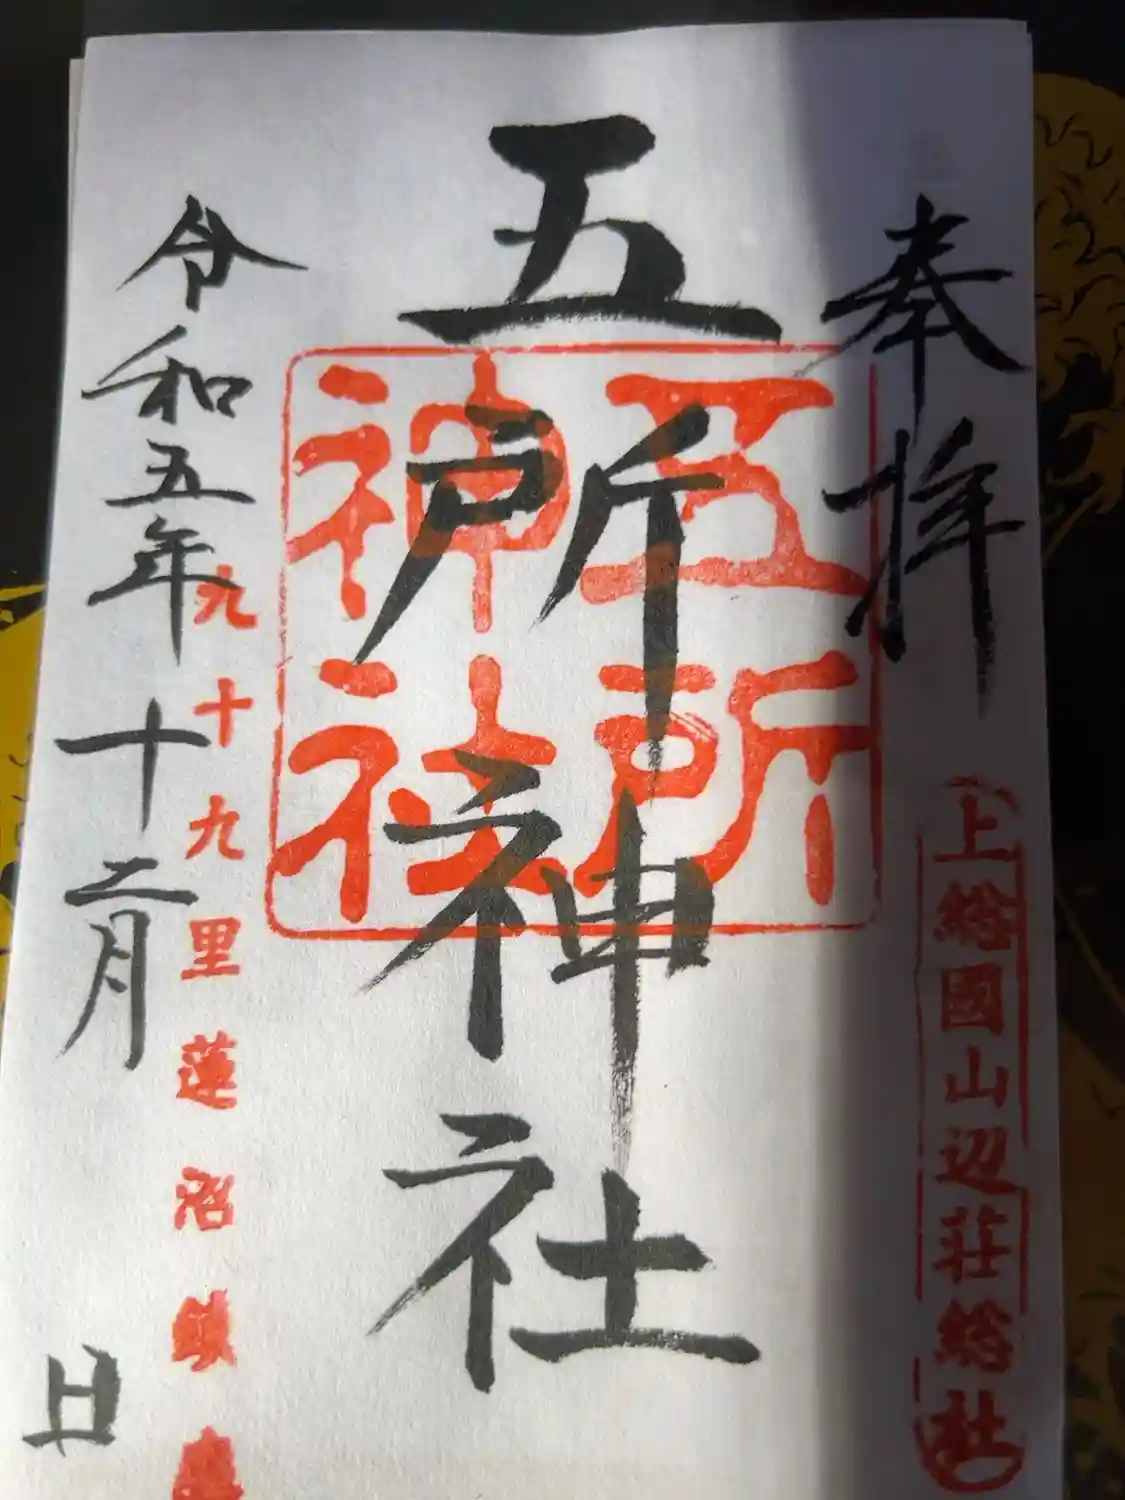 奉拝
上総國山辺荘総社
五所神社
五所
神社
九十九里蓮沼鎮座
令和五年十二月 日